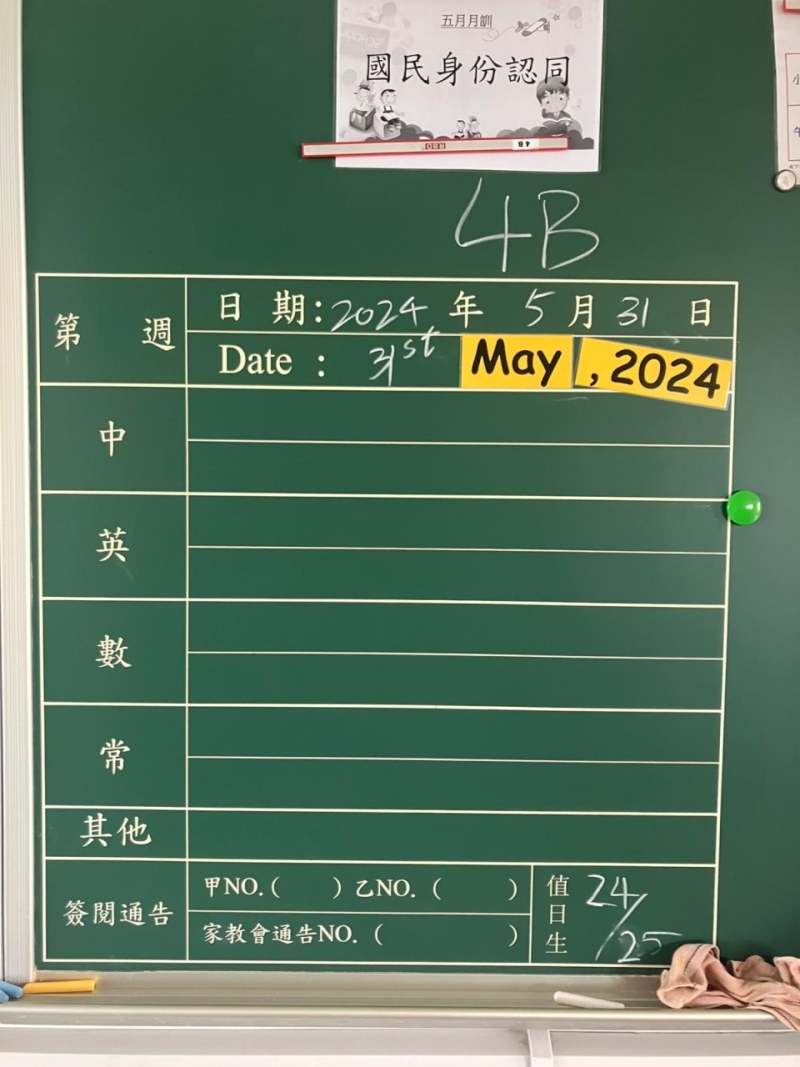 五月月訓
國民身份認同
4B
4B
第 週
日 期:2024 年 5 月 31 日
Date : 31st May , 2024
中
英
數
常
其他
簽閱通告
甲NO.( ) 乙NO. ( )
家教會通告NO. ( )
值日生
24/25